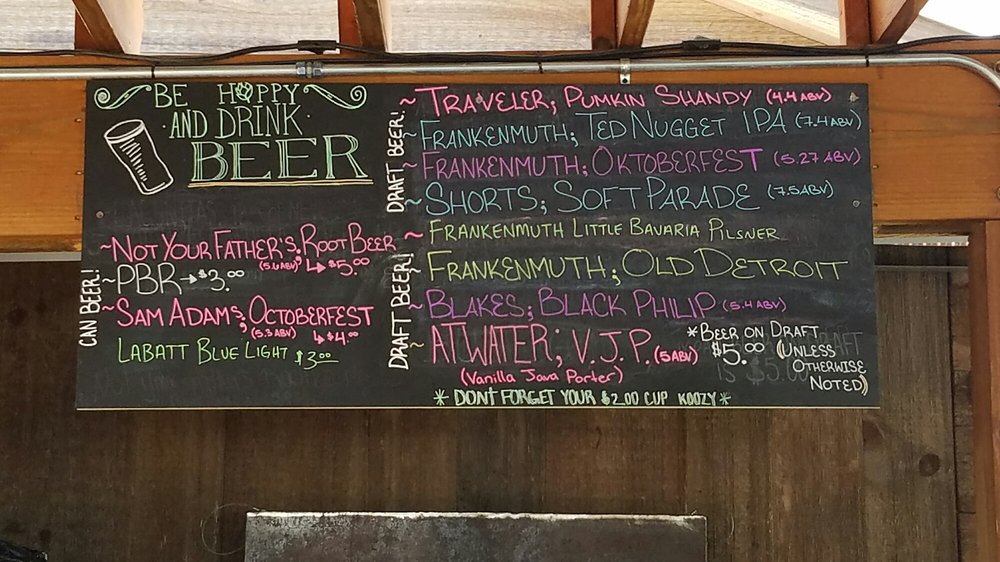 BE HOPPY
AND DRINK
BEER
CAN BEER!
~NOT YOUR FATHER'S; ROOT BEER
(5.6 ABV) ↳ $5.00
~PBR→$3.00
~SAM ADAMS; OCTOBERFEST
(5.3 ABV) ↳ $4.00
LABATT BLUE LIGHT $3.00
DRAFT BEER!
~TRAVELER; PUMKIN SHANDY (4.4 ABV)
~FRANKENMUTH; TED NUGGET IPA (7.4 ABV)
~FRANKENMUTH: OKTOBERFEST (5.27 ABV)
~SHORTS; SOFT PARADE (7.5 ABV)
DRAFT BEER!
~ FRANKENMUTH LITTLE BAVARIA PILSNER
~FRANKENMUTH; OLD DETROIT
~BLAKES; BLACK PHILIP (5.4 ABV)
~ATWATER; V.J.P. (5 ABV)
(Vanilla Java Porter)
*BEER ON DRAFT
$5.00 (UNLESS
OTHERWISE
NOTED)
* DONT FORGET YOUR $2.00 CUP KOOZY *